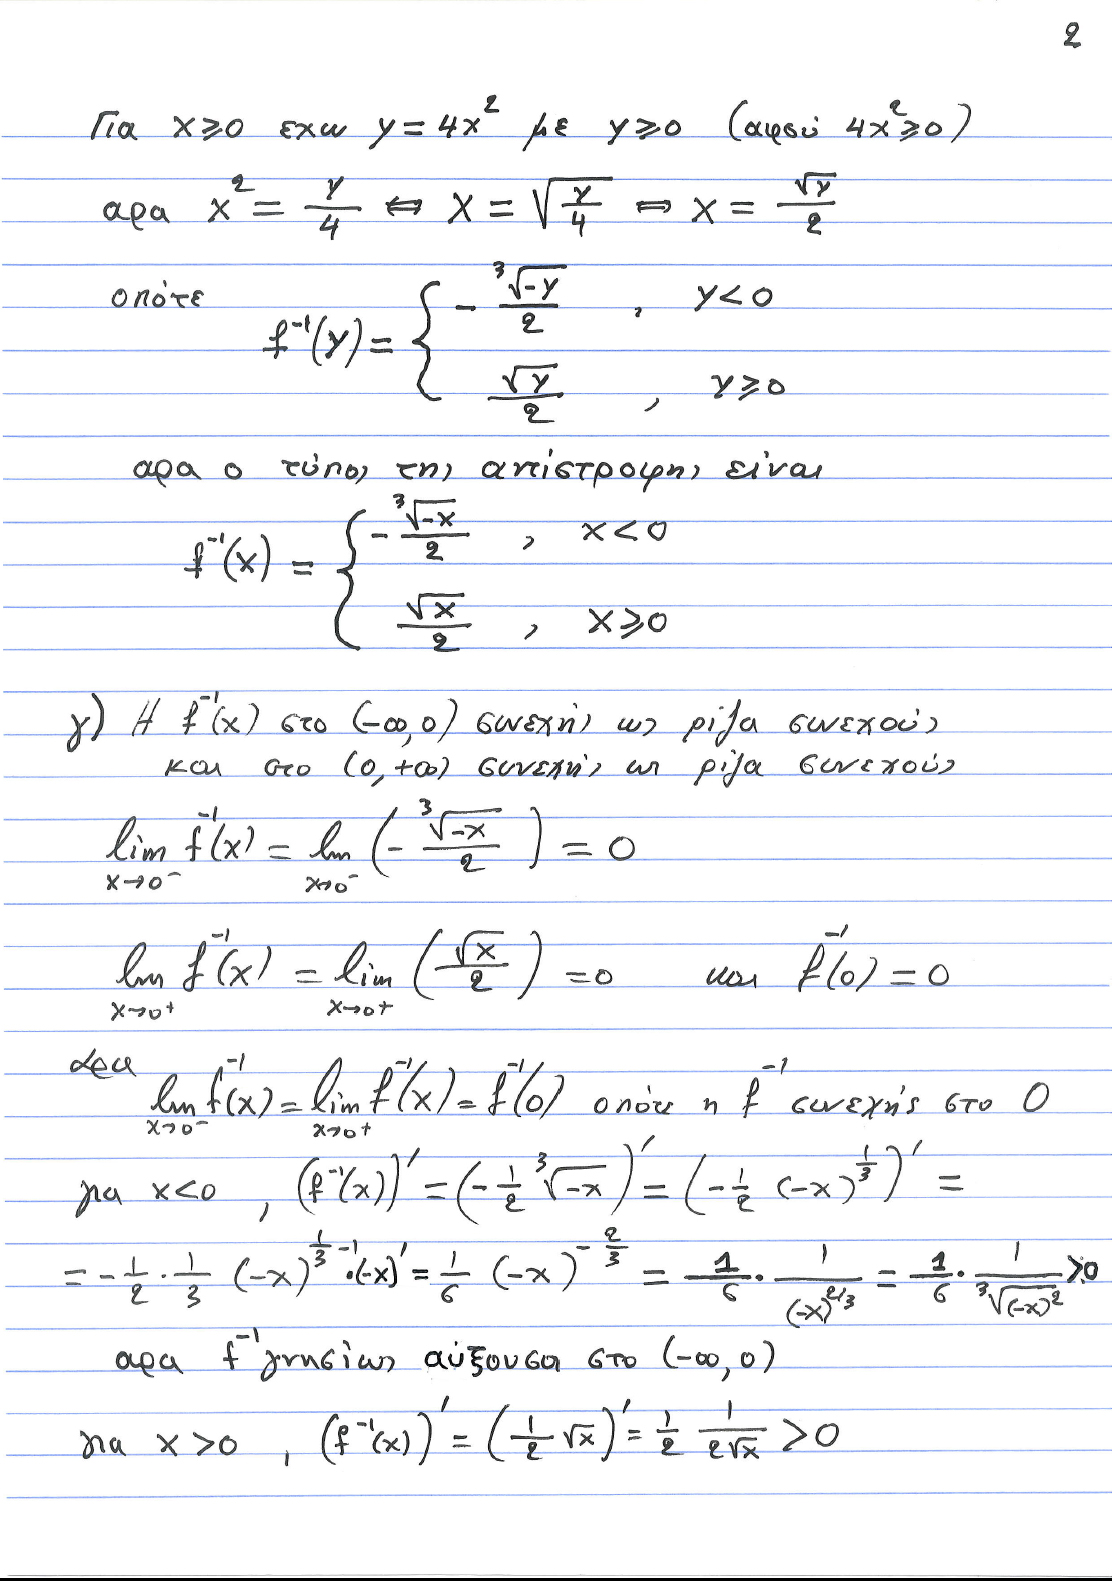 2
Για x≥0 εχω y = 4x² με y≥0 (αφού 4x²≥0)
αρα x² = y/4 ⇔ x = √(y/4) ⇔ x = √y/2
οπότε f⁻¹(y) = { -∛(-y)/2 , y<0
√y/2 , y≥0
αρα ο τύπος της αντίστροφης είναι
f⁻¹(x) = { -∛(-x)/2 , x<0
√x/2 , x≥0
γ) Η f⁻¹(x) στο (-∞,0) συνεχής ως ρίζα συνεχούς
και στο (0,+∞) συνεχής ως ρίζα συνεχούς
lim x→0⁻ f⁻¹(x) = lim x→0⁻ (-∛(-x)/2) = 0
lim x→0⁺ f⁻¹(x) = lim x→0⁺ (√x/2) = 0 και f⁻¹(0) = 0
αρα lim x→0⁻ f⁻¹(x) = lim x→0⁺ f⁻¹(x) = f⁻¹(0) οπότε η f⁻¹ συνεχής στο 0
για x<0 , (f⁻¹(x))' = (-1/2 ∛(-x))' = (-1/2 (-x)^(1/3))' =
= -1/2 · 1/3 (-x)^(1/3 -1) · (-x)' = 1/6 (-x)^(-2/3) = 1/6 · 1/(-x)^(2/3) = 1/6 · 1/∛((-x)²) >0
αρα f⁻¹ γνησίως αύξουσα στο (-∞,0)
για x>0 , (f⁻¹(x))' = (1/2 √x)' = 1/2 1/(2√x) >0